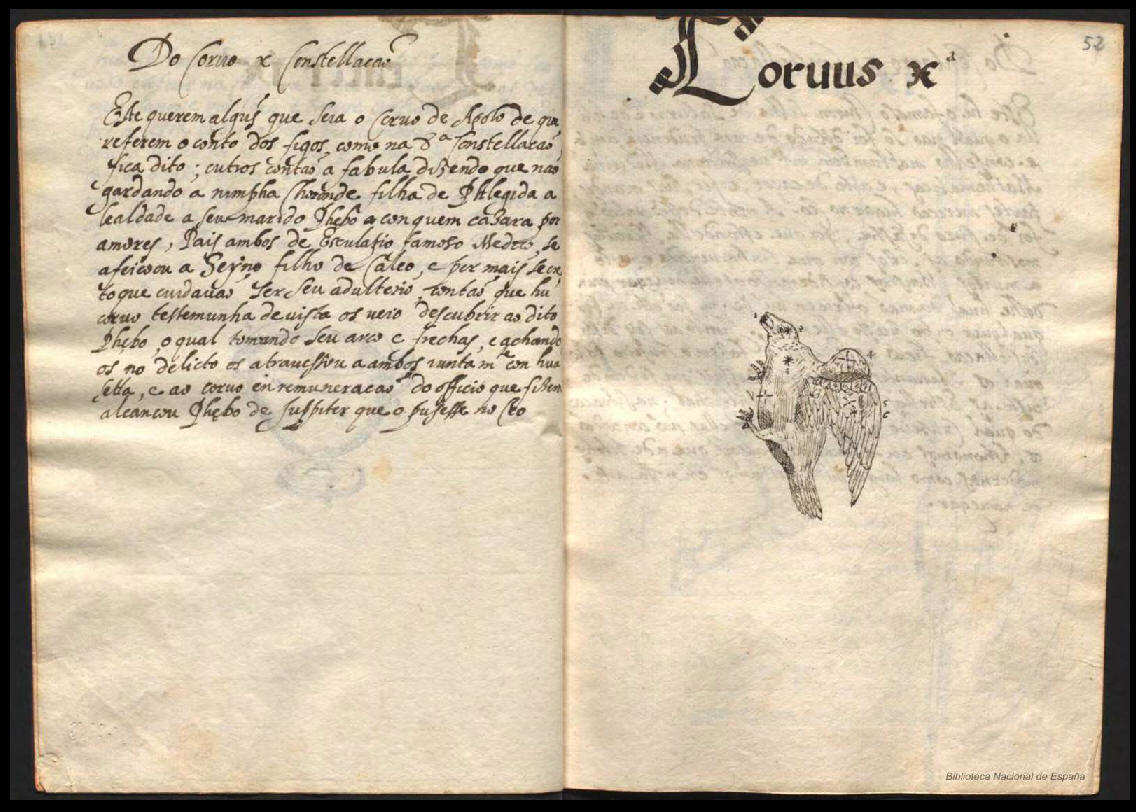 Do Coruo x Constellacaõ
Este querem algũs que seia o Coruo de Apolo de que
referem o conto dos figos, como na 8ª Constellacaõ
fica dito; outros contaõ a fabula dizendo que naõ
gardando a nimpha filha de Phlegida a
lealdade a seu marido Phębo a con quem cazara por
amores, Pais ambos de Esculapio famoso Medico, se
afeicoou a filho de e per mais secre
to que cuidauaõ ser seu adulterio, contaõ que hũ
coruo testemunha de uista os ueio descubrir ao dito
Phębo, o qual tomando seu arco e frechas, e achando
os no delicto os atrauessou a ambos iuntamte con hua
setta, e ao coruo en remuneracaõ do officio que
alcancou Phębo de Juppiter que o pusesse no Ceo
Coruus x
52
Biblioteca Nacional de España